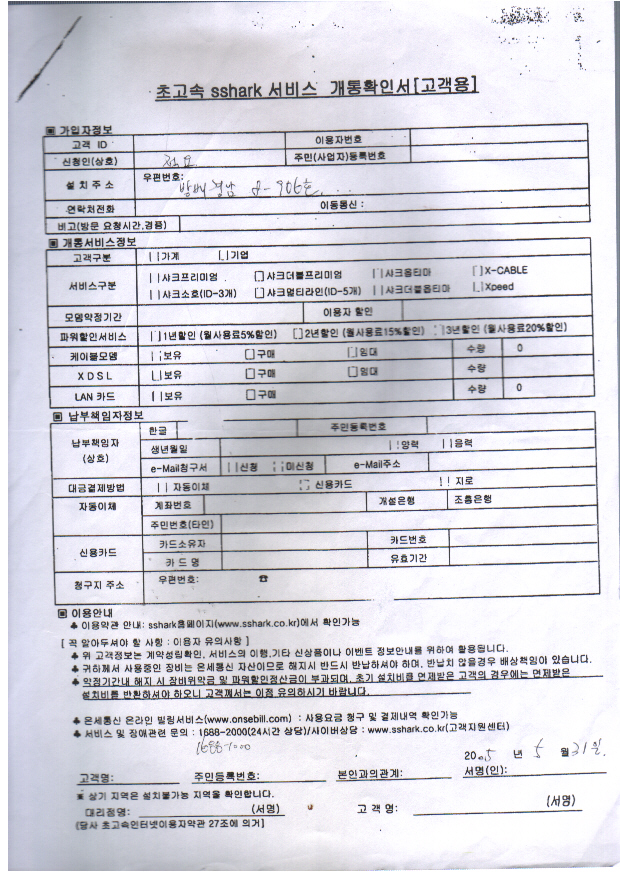 초고속 sshark 서비스 개통확인서[고객용]
▣ 가입자정보
고객 ID 이용자번호
신청인(상호) 주민(사업자)등록번호
설 치 주 소 우편번호:
8-906호
연락처전화 이동통신 :
비고(방문 요청시간,경품)
▣ 개통서비스정보
고객구분 가계 기업
서비스구분 샤크프리미엄 샤크더블프리미엄 샤크옵티마 X-CABLE
샤크소호(ID-3개) 샤크멀티라인(ID-5개) 샤크더블옵티마 Xpeed
모뎀약정기간 이용자 할인
파워할인서비스 1년할인 (월사용료5%할인) 2년할인 (월사용료15%할인) 3년할인 (월사용료20%할인)
케이블모뎀 보유 구매 임대 수량 0
X D S L 보유 구매 임대 수량
LAN 카드 보유 구매 수량 0
▣ 납부책임자정보
납부책임자 (상호) 한글 주민등록번호
생년월일 양력 음력
e-Mail청구서 신청 미신청 e-Mail주소
대금결제방법 자동이체 신용카드 지로
자동이체 계좌번호 개설은행 조흥은행
주민번호(타인)
신용카드 카드소유자 카드번호
카 드 명 유효기간
청구지 주소 우편번호: ☎
▣ 이용안내
♣ 이용약관 안내: sshark홈페이지(www.sshark.co.kr)에서 확인가능
[ 꼭 알아두셔야 할 사항 : 이용자 유의사항 ]
♣ 위 고객정보는 계약성립확인, 서비스의 이행,기타 신상품이나 이벤트 정보안내를 위하여 활용됩니다.
♣ 귀하께서 사용중인 장비는 온세통신 자산이므로 해지시 반드시 반납하셔야 하며, 반납치 않을경우 배상책임이 있습니다.
♣ 약정기간내 해지 시 장비위약금 및 파워할인정산금이 부과되며, 초기 설치비를 면제받은 고객의 경우에는 면제받은
설치비를 반환하셔야 하오니 고객께서는 이점 유의하시기 바랍니다.
♣ 온세통신 온라인 빌링서비스(www.onsebill.com) : 사용요금 청구 및 결제내역 확인가능
♣ 서비스 및 장애관련 문의 : 1688-2000(24시간 상담)/사이버상담 : www.sshark.co.kr(고객지원센터)
1688-1000
2005 년 5 월 31일.
고객명: 주민등록번호: 본인과의관계: 서명(인):
※ 상기 지역은 설치불가능 지역을 확인합니다.
대리점명: (서명) 고 객 명: (서명)
(당사 초고속인터넷이용자약관 27조에 의거]